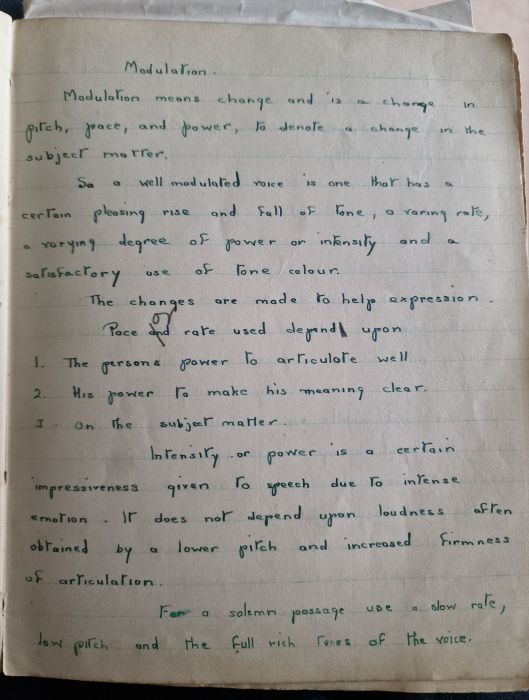 Modulation.
Modulation means change and is a change in
pitch, pace, and power, to denote a change in the
subject matter.
So a well modulated voice is one that has a
certain pleasing rise and fall of tone, a varing rate,
a varying degree of power or intensity and a
satisfactory use of tone colour.
The changes are made to help expression.
Pace or rate used depend upon
1. The persons power to articulate well
2. His power to make his meaning clear.
3. On the subject matter.
Intensity or power is a certain
impressiveness given to speech due to intense
emotion. It does not depend upon loudness often
obtained by a lower pitch and increased firmness
of articulation.
For a solemn passage use a slow rate,
low pitch and the full rich tones of the voice.